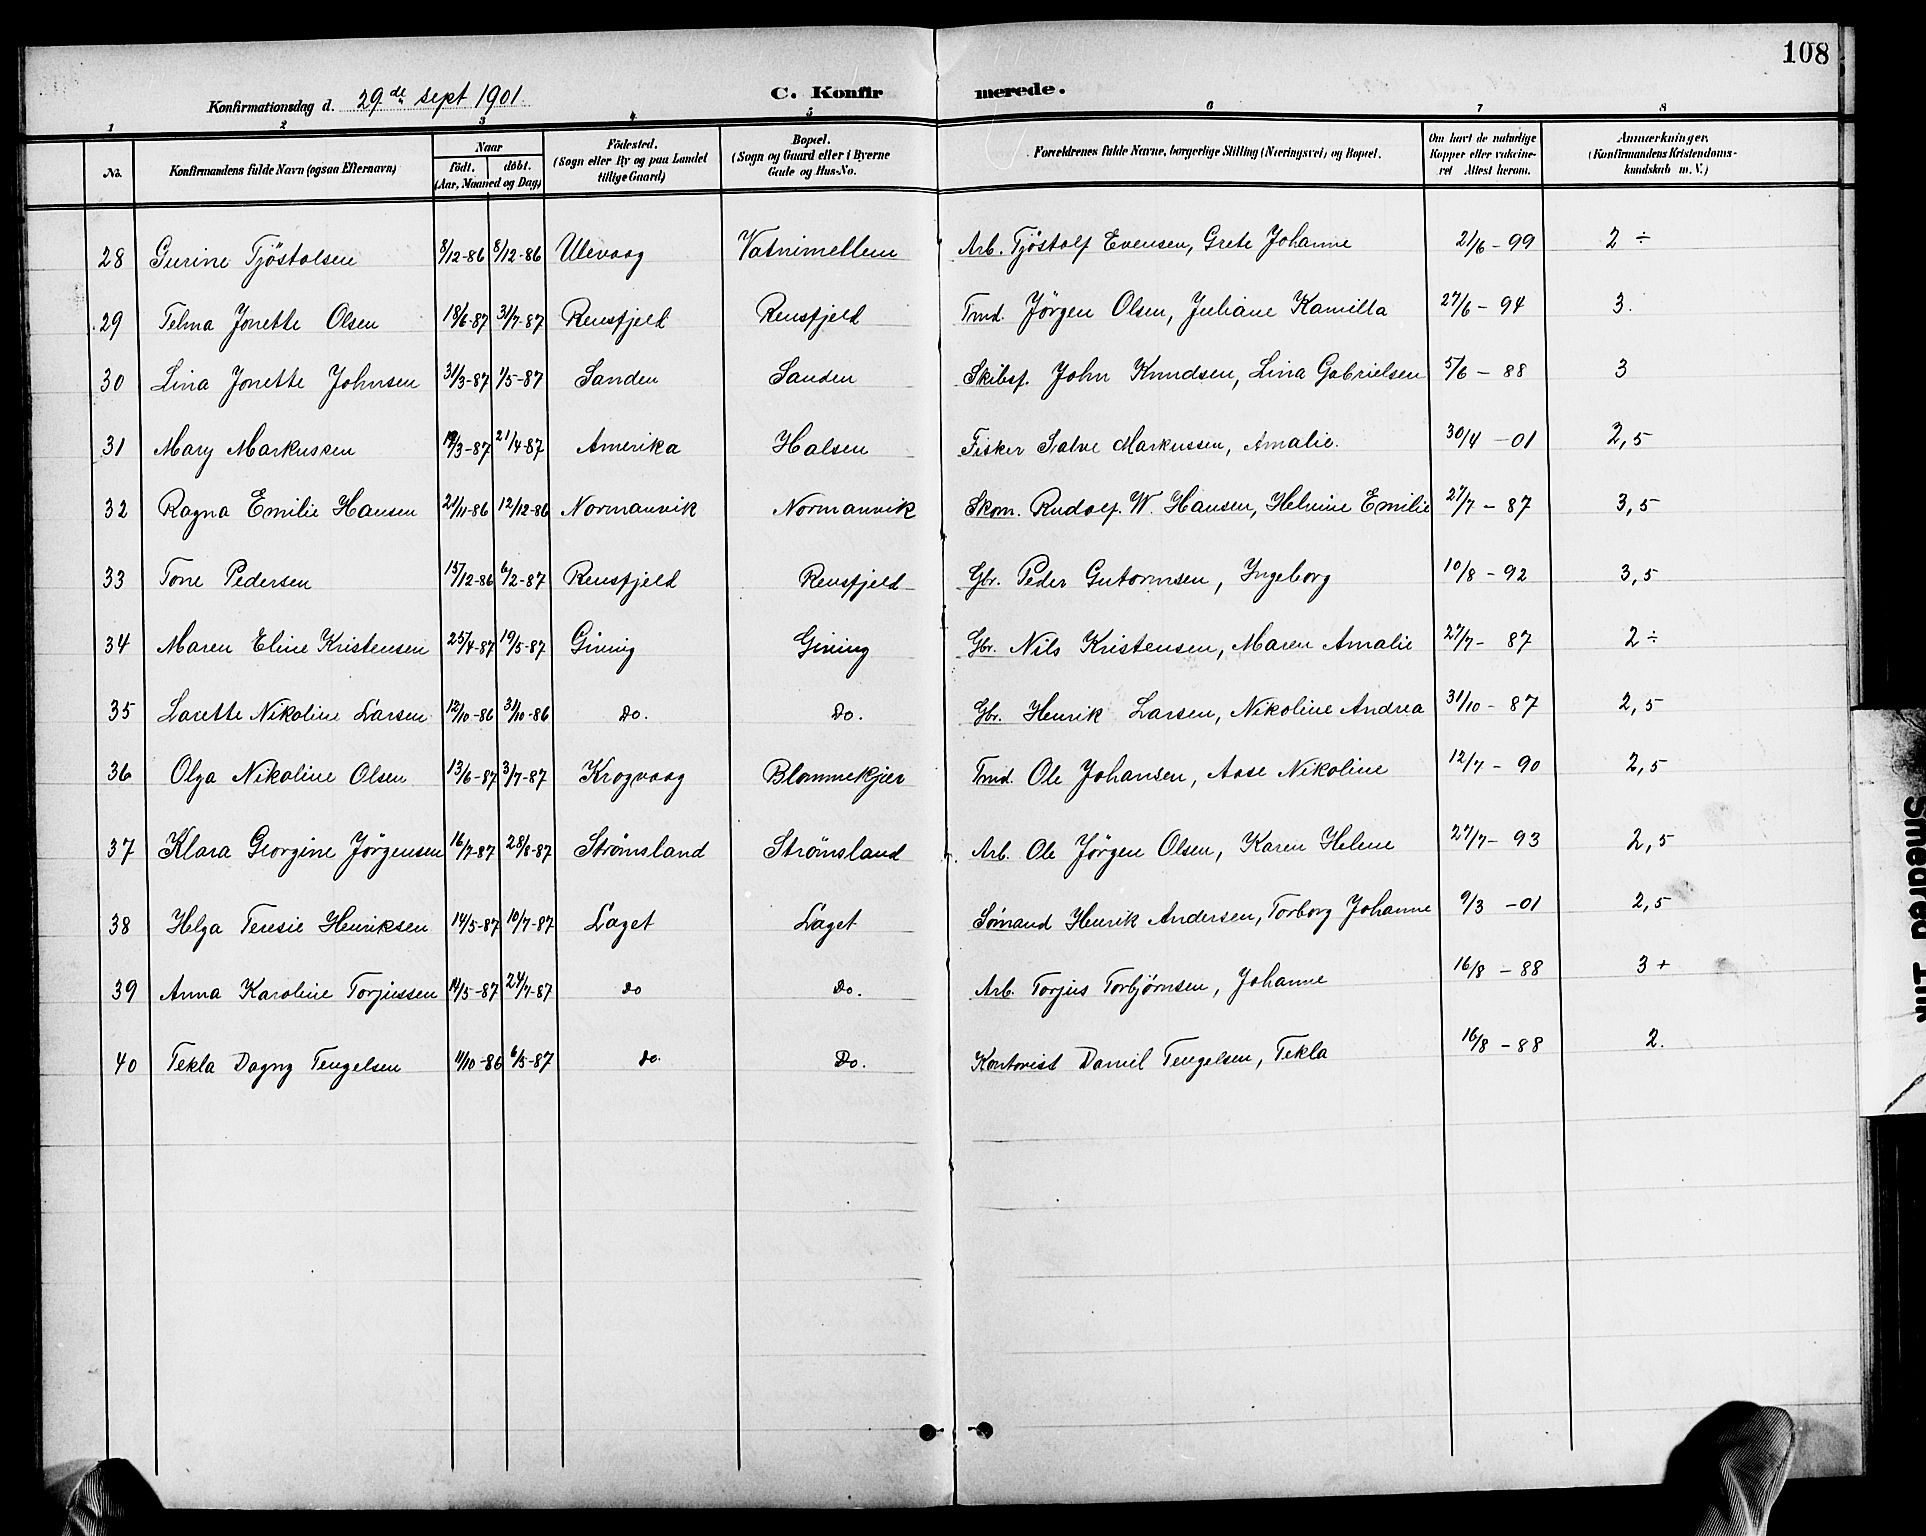 108
Konfirmationsdag d. 29de sept 1901. C. Konfirmerede.
1 2 3 4 5 6 7 8
No. Konfirmandens fulde Navn (ogsaa Efternavn) Naar födt. döbt. (Aar, Maaned og Dag) Födested. (Sogn eller By og paa Landet tillige Gaard) Bopæl. (Sogn og Gaard eller i Byerne Gade og Hus-No. Forældrenes fulde Navne, borgerlige Stilling (Næringsvei) og Bopæl. Om havt de naturlige Kopper eller vakcineret Attest herom. Anmærkninger. (Konfirmandens Kristendomskundskab m. V.)
28 Gurine Tjöstolsen 8/12-86 8/12-86 Ulevaag Vatnimellem Arb. Tjöstolf Evensen, Grete Johanne 21/6-99 2 ÷
29 Telma Jonette Olsen 18/6-87 31/7-87 Rensfjeld Rensfjeld Tmd. Jörgen Olsen, Juliane Kamilla 27/6-94 3.
30 Lina Jonette Johnsen 31/3-87 1/5-87 Sanden Sanden Skibsf. John Knudsen, Lina Gabrielsen 5/6-88 3
31 Mary Markussen 19/3-87 21/4-87 Amerika Halsen Fisker Salve Markussen, Amalie. 30/4-01 2,5
32 Ragna Emilie Hansen 21/11-86 12/12-86 Normanvik Normanvik Skom. Rudolf. W. Hansen, Helmine Emilie 27/7-87 3,5
33 Tone Pedersen 15/12-86 6/2-87 Rensfjeld Rensfjeld Gbr. Peder Gutormsen, Ingeborg 10/8-92 3,5
34 Maren Eline Kristensen 25/4-87 19/5-87 Giving Giving Gbr. Nils Kristensen, Maren Amalie 27/7-87 2 ÷
35 Lorette Nikoline Larsen 12/10-86 31/10-86 Do. Do. Gbr. Henrik Larsen, Nikoline Andrea 31/10-87 2,5
36 Olga Nikoline Olsen 13/6-87 3/7-87 Krogvaag Blommekjær Tmd. Ole Johansen, Aase Nikoline 12/7-90 2,5
37 Klara Georgine Jørgensen 16/7-87 28/8-87 Strømsland Strømsland Arb. Ole Jørgen Olsen, Karen Helene 27/7-93 2,5
38 Helga Teresie Henriksen 14/5-87 10/7-87 Laget Laget Sømand Henrik Andersen, Torborg Johanne 9/3-01 2,5
39 Anna Karoline Torjussen 14/5-87 24/7-87 do Do. Arb. Torjus Torbjørnsen, Johanne 16/8-88 3 +
40 Tekla Dagny Tengelsen 11/10-86 6/5-87 do. Do. Kontorist Daniel Tengelsen, Tekla 16/8-88 2.